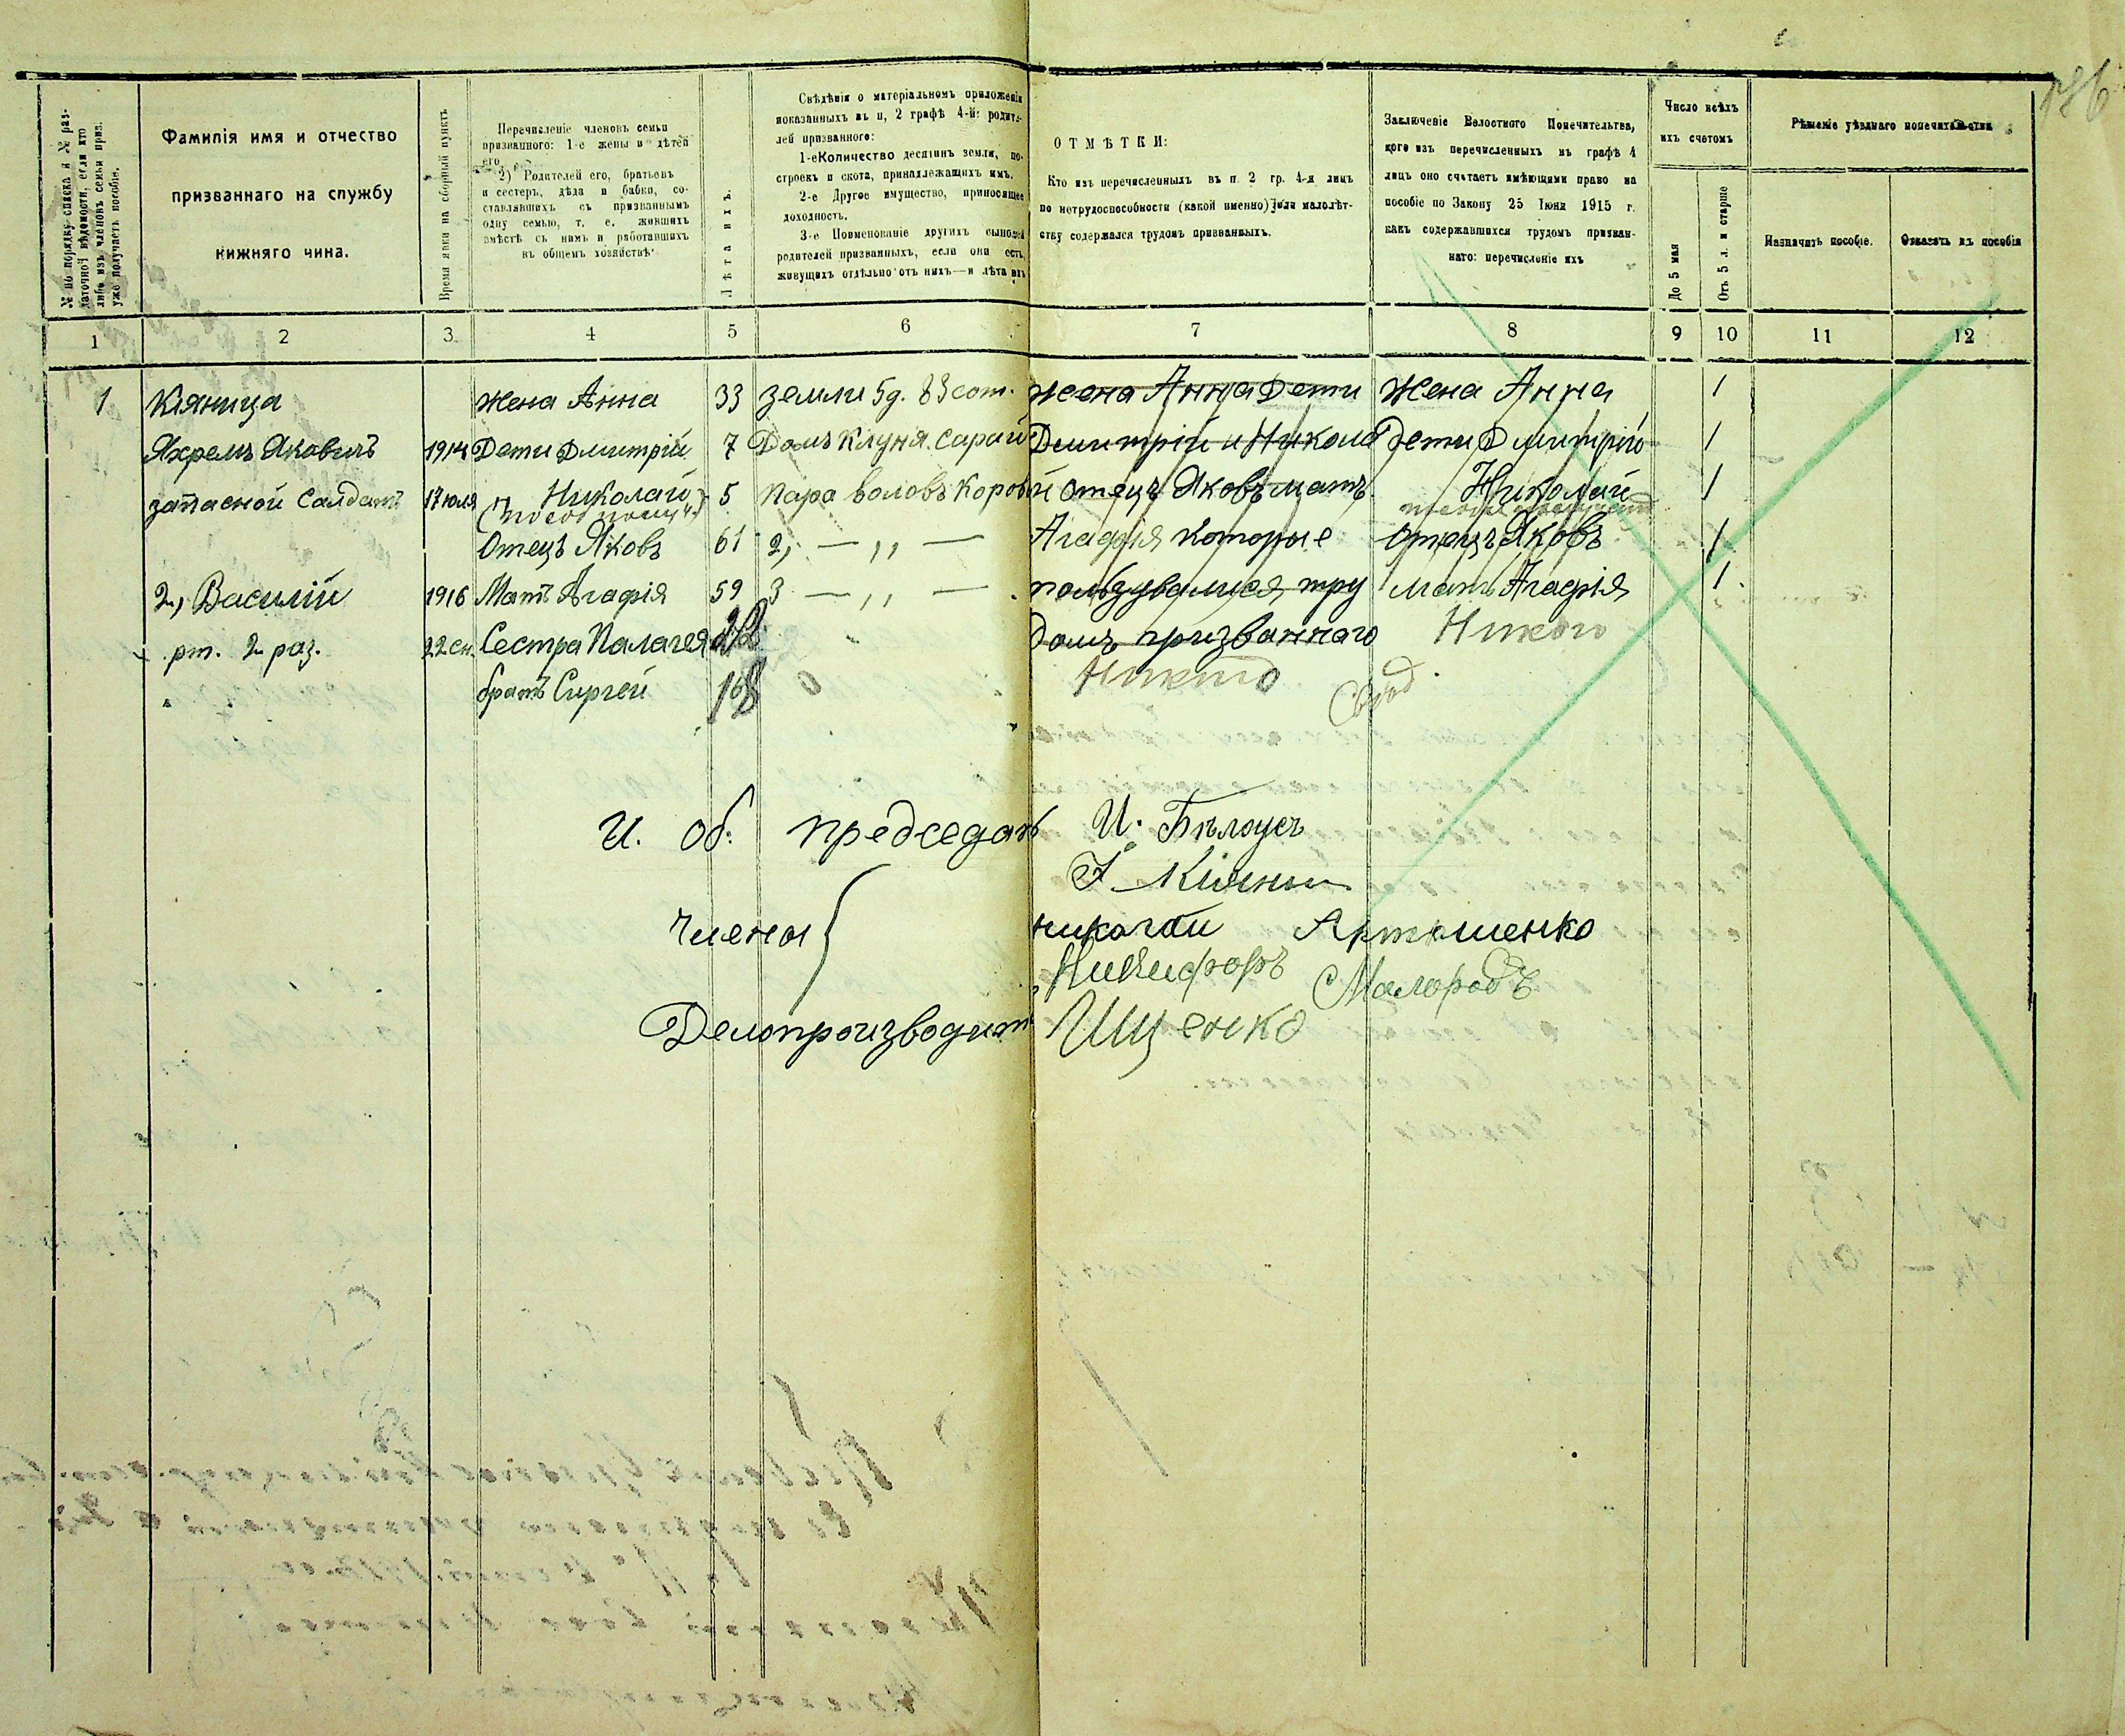 № по порядку списка и № раз-
даточной вѣдомости, если кто
либо изъ членовъ семьи приз.
уже получаетъ пособіе.
Фамилія имя и отчество
призваннаго на службу
нижняго чина.
Время явки на сборный пунктъ
Перечисленіе членовъ семьи
призваннаго: 1-е жены и дѣтей
его
2) Родителей его, братьевъ
и сестеръ, дѣда и бабки, со-
ставлявшихъ съ призваннымъ
одну семью, т. е. жившихъ
вмѣстѣ съ нимъ и работавшихъ
въ общемъ хозяйствѣ
Лѣта ихъ.
Свѣдѣнія о матеріальномъ приложеніи
показанныхъ въ п, 2 графѣ 4-й: родите-
лей призваннаго:
1-е Количество десятинъ земли, по-
строекъ и скота, принадлежащихъ имъ.
2-е Другое имущество, приносящее
доходность.
3-е Поименованіе другихъ сыновей
родителей призванныхъ, если они есть,
живущихъ отдѣльно отъ нихъ—и лѣта ихъ
ОТМѢТКИ:
Кто изъ перечисленныхъ въ п. 2 гр. 4-й лицъ
по нетрудоспособности (какой именно) или малолѣт-
ству содержался трудомъ призванныхъ.
Заключеніе Волостного Попечительства,
кого изъ перечисленныхъ въ графѣ 4
лицъ оно считаетъ имѣющими право на
пособіе по Закону 25 Іюня 1915 г.
какъ содержавшихся трудомъ призван-
наго: перечисленіе ихъ
Число всѣхъ
ихъ счетомъ
До 5 мая
Отъ 5 л. и старше
Рѣшеніе уѣзднаго попечительства
Назначить пособіе.
Отказать въ пособіи
1 2 3 4 5 6 7 8 9 10 11 12
1 Кіяница Жена Анна 33 Земли 5 д. 83 сот. Жена Анна Дети Жена Анна 1
Яковичъ 1914 Дети Дмитрій 7 Домъ Клуня. Сарай Дмитрій и Никола Дети Дмитрій 1
запасной Салдатъ 17 юля Николай 5 Пара воловъ Коров й Отецъ Яковъ мать Николай 1
Отецъ Яковъ 61 2, — „ — Агафія которые Отецъ Яковъ 1
2, Василій 1916 Мать Агафія 59 3 — „ — пользувалися тру Мать Агафія 1
рт. 2 раз. 22 Сестра Палагея домъ призваннаго Никого
братъ Сиргей 18 Никто
И. об. председат И. Бѣлоусъ
Члены
николай Артюшенко
Никифоръ Малородъ
Делопроизводит Ищенко